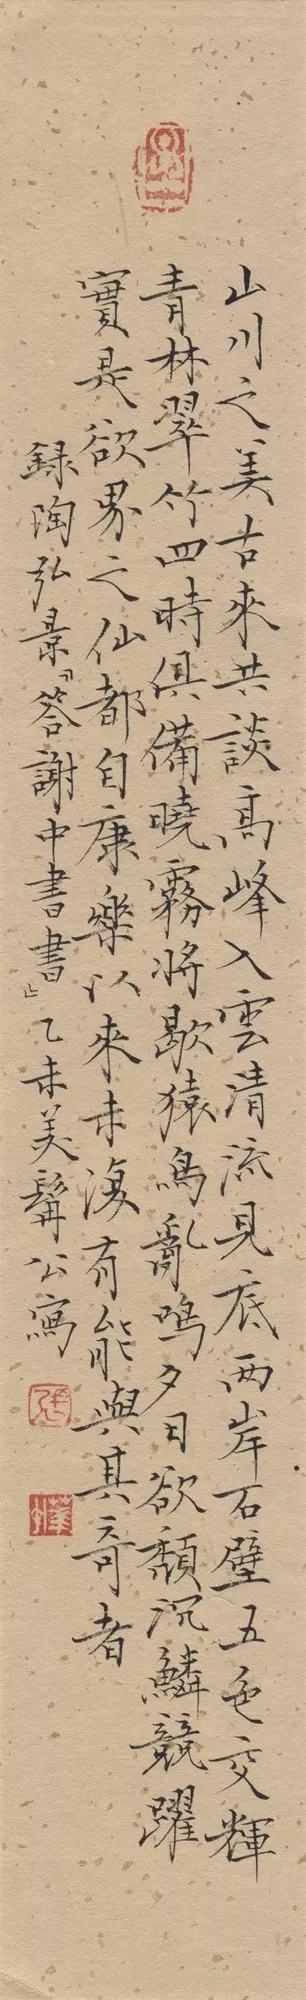 山川之美古來共談高峰入雲清流見底兩岸石壁五色交輝
青林翠竹四時俱備曉霧將歇猿鳥亂鳴夕日欲頹沉鱗競躍
實是欲界之仙都自康樂以來未復有能與其奇者
録陶弘景『答謝中書書』乙未美髯公寫